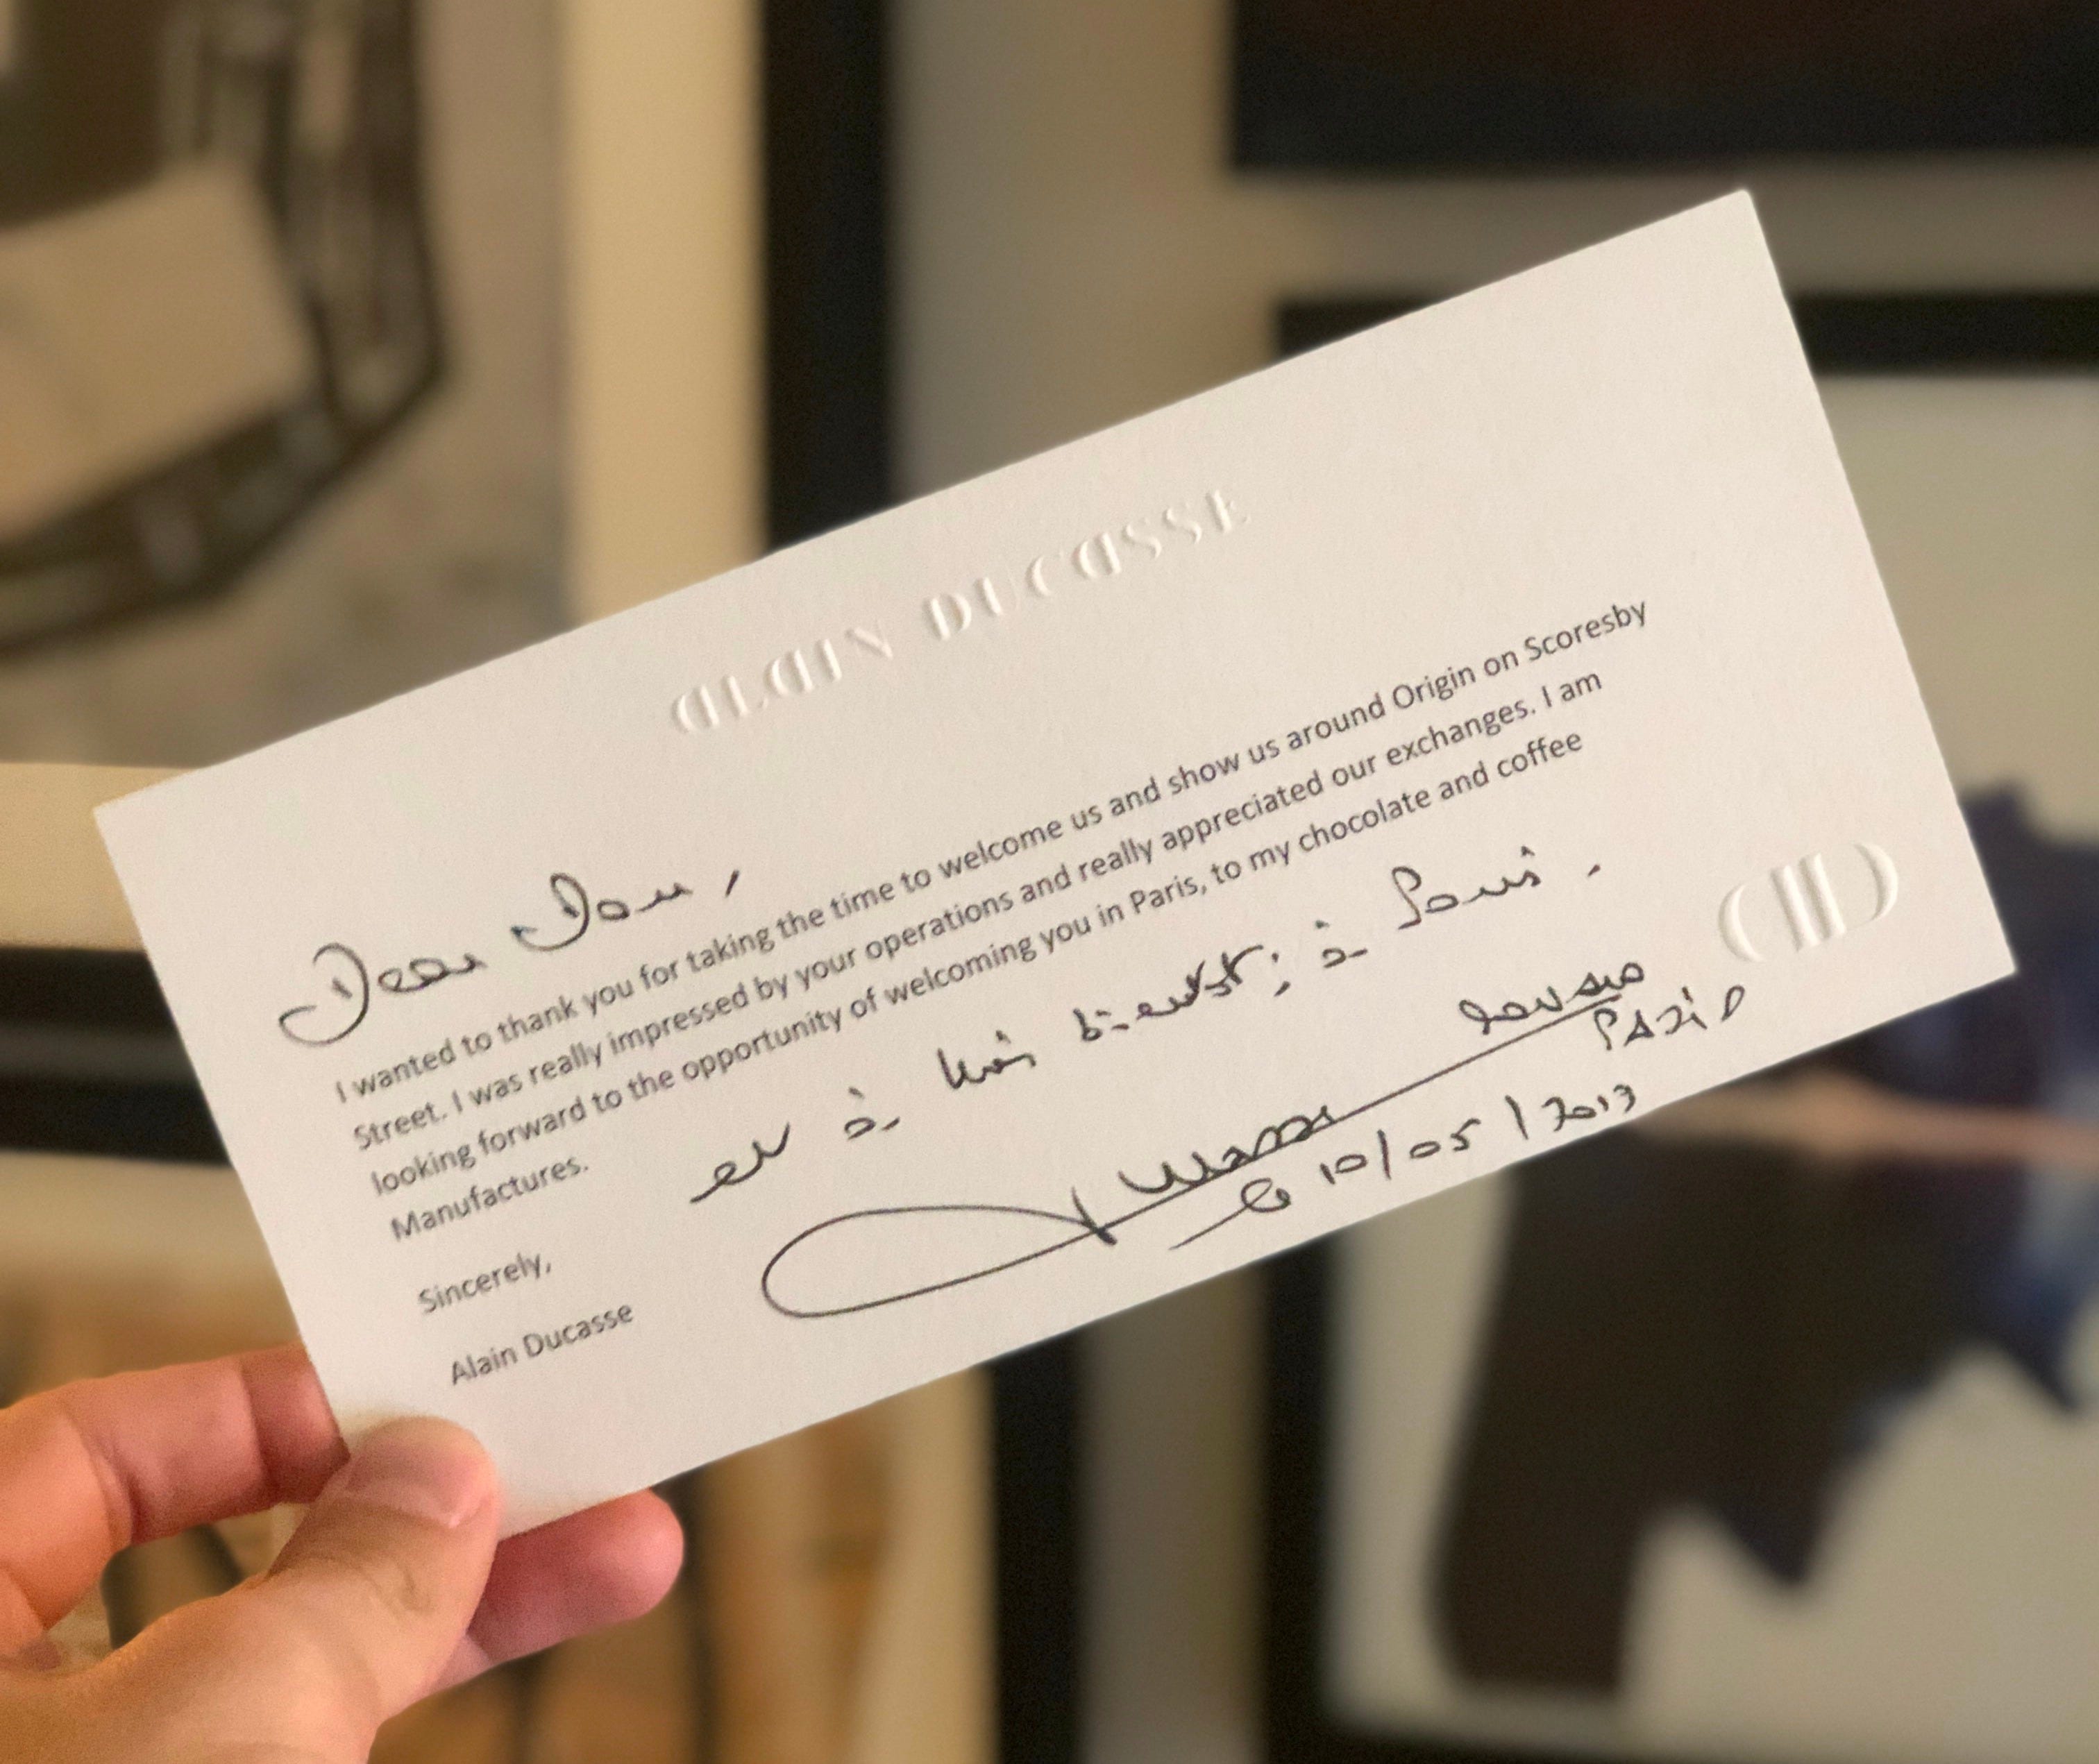 ALAIN DUCASSE
Dear Dom,
I wanted to thank you for taking the time to welcome us and show us around Origin on Scoresby
Street. I was really impressed by your operations and really appreciated our exchanges. I am
looking forward to the opportunity of welcoming you in Paris, to my chocolate and coffee
Manufactures.
et à très bientôt, à Paris.
Sincerely,
Alain Ducasse
PARIS
le 10/05/2017